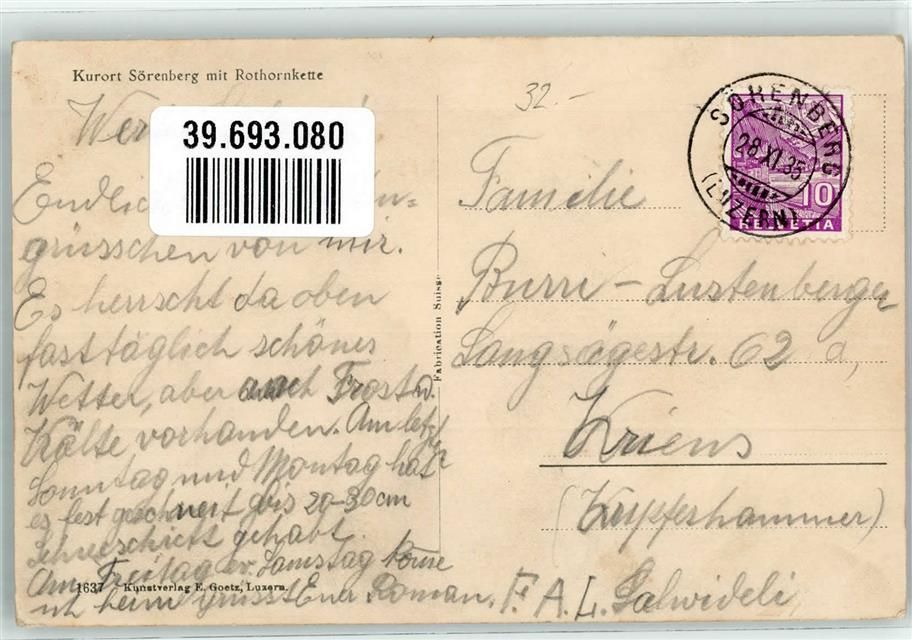 Kurort Sörenberg mit Rothornkette
39.693.080
grüsschen von mir.
Es herrscht da oben
fast täglich schönes
Wetter, aber auch Frost u.
Kälte vorhanden. Am letzt
Sonntag und Montag hat
es fest geschneit bis 20-30cm
gehabt.
Am Freitag ev. Samstag komme
ich heim grüsst Euer Roman.
1637 Kunstverlag E. Goetz, Luzern.
Fabrication Suisse
32.-
SÖRENBERG
28.XI.35
(LUZERN)
10
HELVETIA
Familie
Burri - Lustenberger
Langsägestr. 62 a,
Kriens
(Kupferhammer)
F. A. L. Salwideli